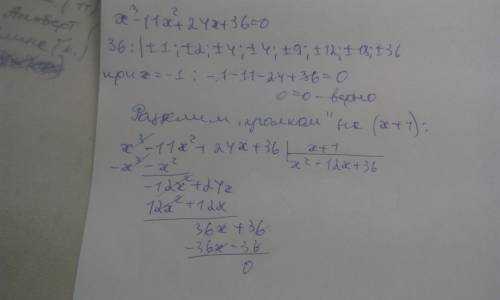 x³-11x²+24x+36=0
36:|±1;±2;±4;±4;±9;±12;±18;±36
при x=-1: -1-11-24+36=0
0=0-верно
Разделим „уголком" на (x+1):
x³-11x²+24x+36 | x+1
-x³-x² x²-12x+36
-12x²+24x
12x²+12x
36x+36
-36x-36
0